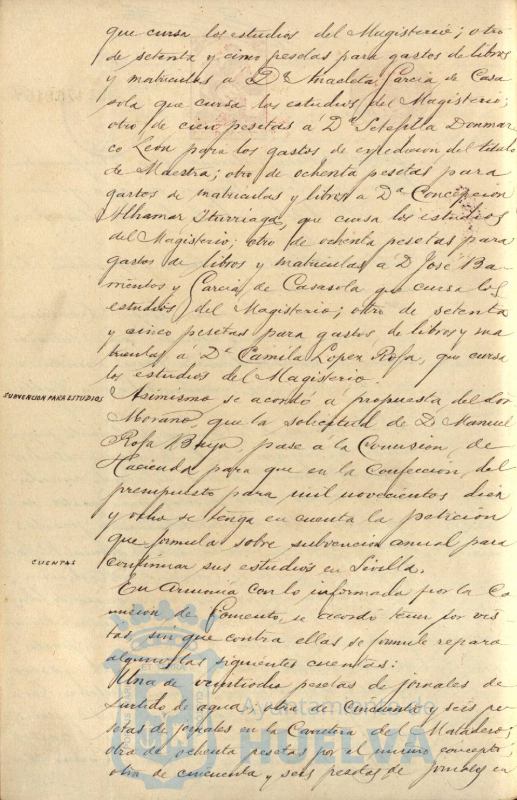 que cursa los estudios del Magisterio; otro
de setenta y cinco pesetas para gastos de libros
y matriculas á Dª Anacleta Garcia de Casa
sola que cursa los estudios del Magisterio;
otro de cien pesetas á Dª Setefilla Donmar
co León para los gastos de expedicion del titulo
de Maestra; otro de ochenta pesetas para
gastos de matriculas y libros a Dª Concepcion
Alhamar Iturriaga, que cursa los estudios
del Magisterio; otro de ochenta pesetas para
gastos de libros y matriculas á D José Ba-
rrientos y Garcia de Casasola que cursa los
estudios del Magisterio; otro de setenta
y cinco pesetas para gastos de libros y ma
triculas a Dª Camila Lopez Rofa, que cursa
los estudios del Magisterio.
SUBVENCION PARA ESTUDIOS
Asimismo se acordó á propuesta del Sor
Morano, que la solicitud de D Manuel
Rofa pase á la Comision de
Hacienda para que en la Confeccion del
presupuesto para mil novecientos diez
y ocho se tenga en cuenta la peticion
que formula sobre subvencion anual para
continuar sus estudios en Sevilla.
CUENTAS
En Armonia con lo informado por la Co
mision de Fomento, se acordó tener por vis
tas, sin que contra ellas se formule reparo
alguno las siguientes cuentas:
Una de veintiocho pesetas de jornales de
surtido de agua; otra de cincuenta y seis pe
setas de jornales en la Carretera del Matadero;
otra de ochenta pesetas por el mismo concepto;
otra de cincuenta y seis pesetas de jornales en
Ayuntamiento de
HUELVA